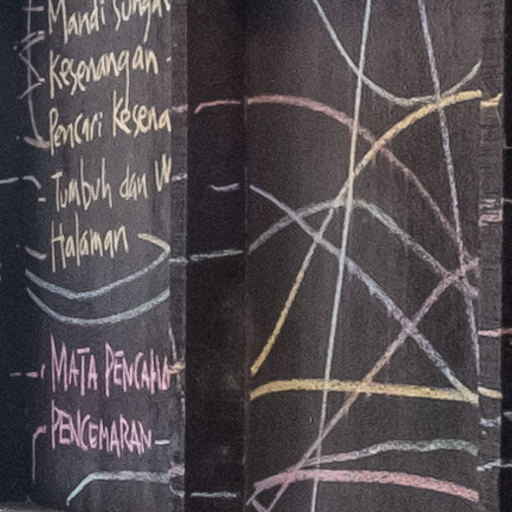 Mandi Sungai
Kesenangan
Pencari Kesena
Tumbuh dan W
Halaman
MATA PENCAHA
PENCEMARAN